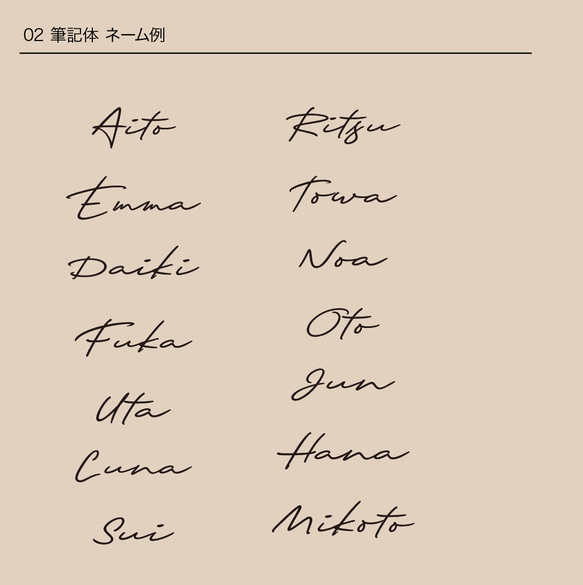 02 筆記体 ネーム例
Aito
Emma
Daiki
Fuka
Uta
Cuna
Sui
Ritsu
Towa
Noa
Oto
Jun
Hana
Mikoto